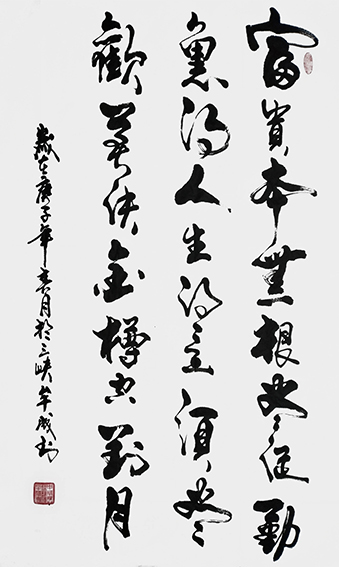 富貴本無根尽從勤
裏得人生得意須尽
歡莫使金樽空對月
歲在庚子年春月於三峽